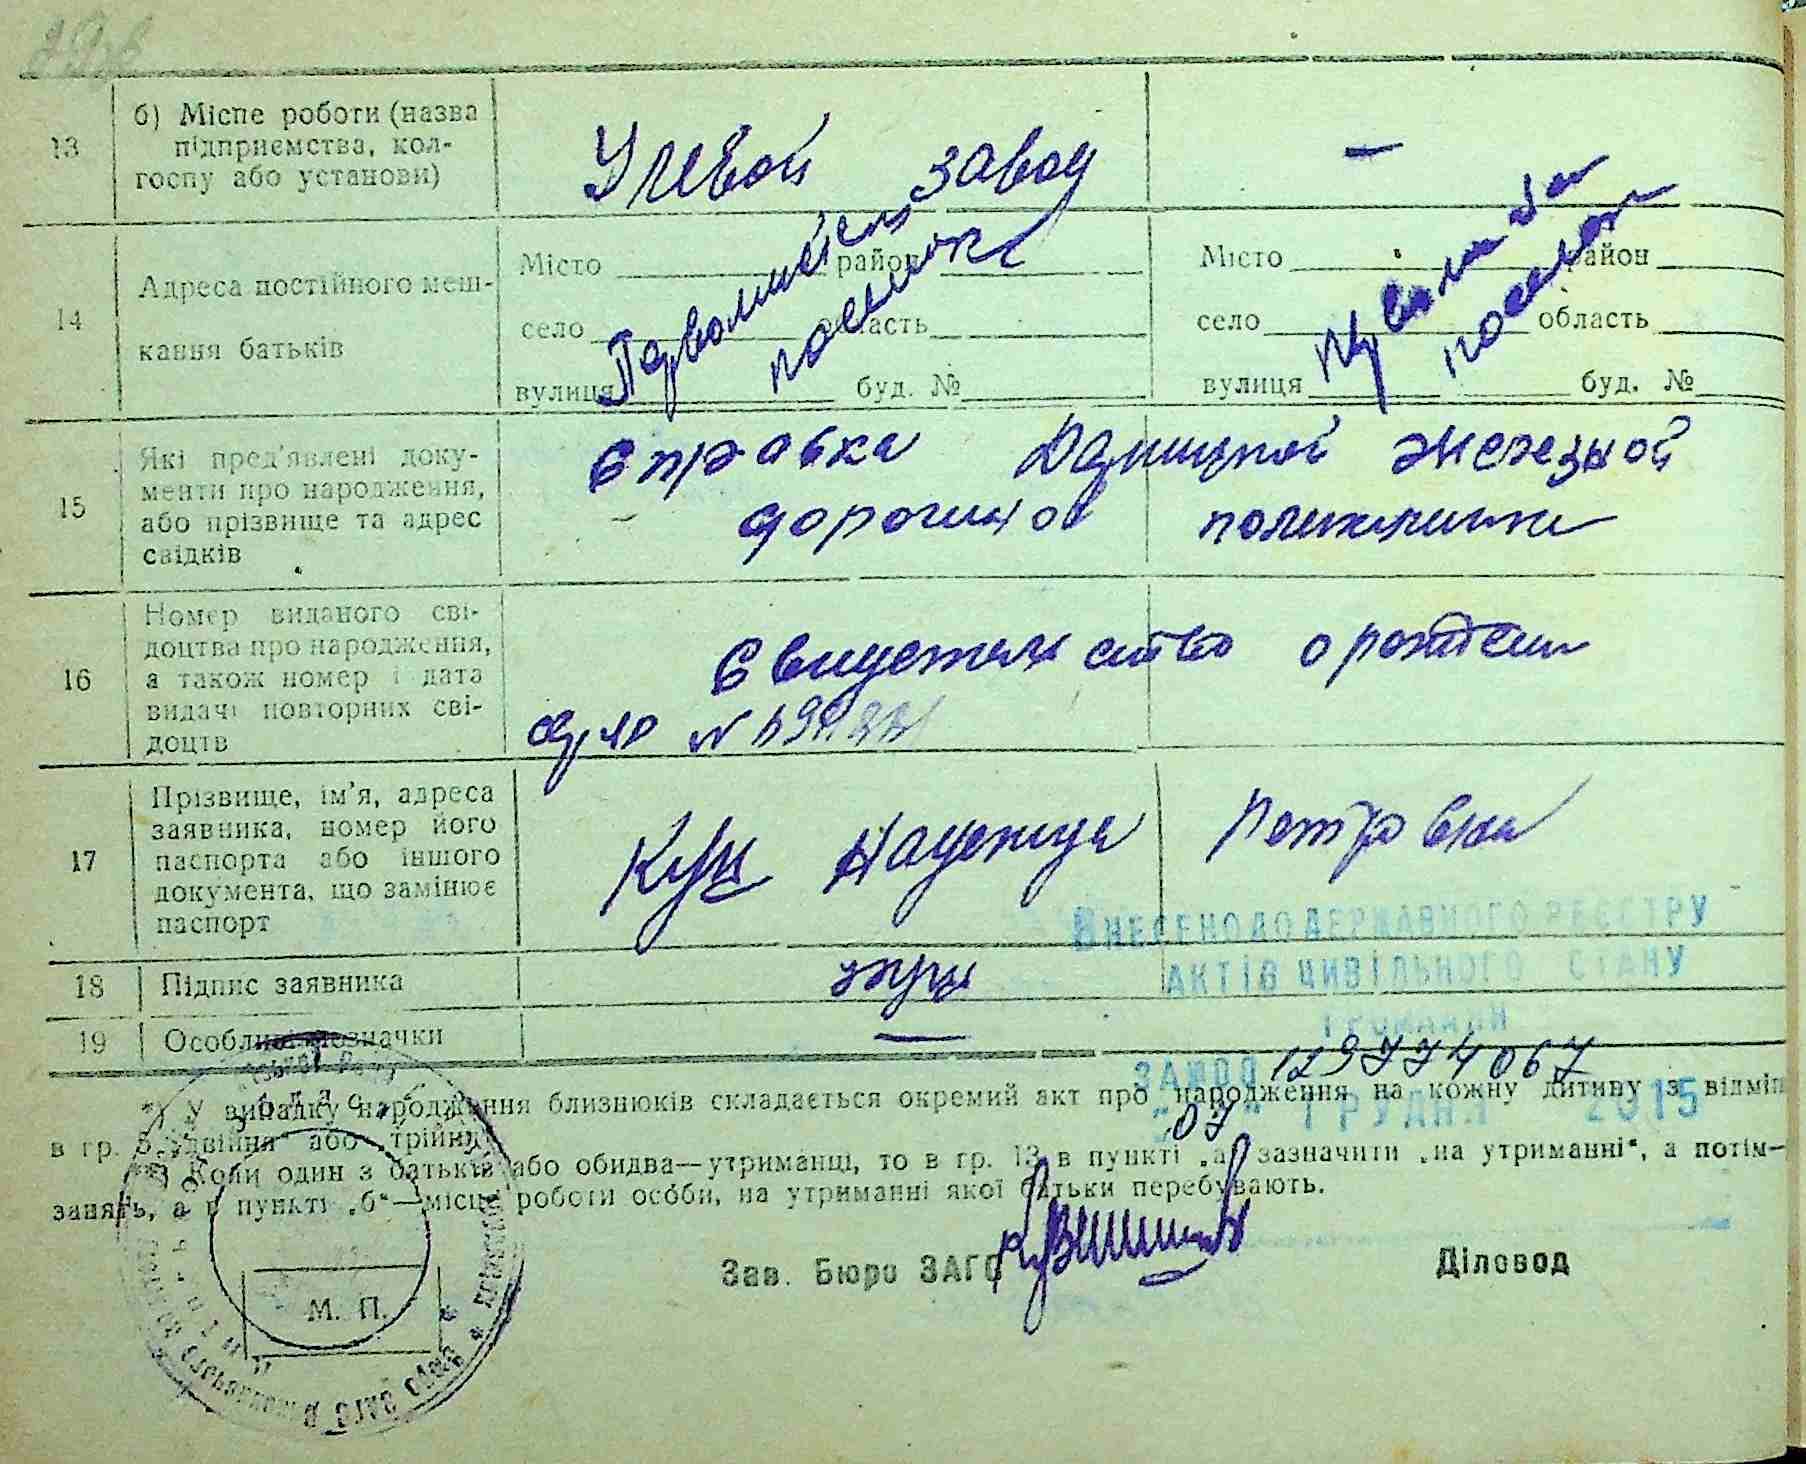 13
б) Місце роботи (назва
підприємства, кол-
госпу або установи)
завод
—
14
Адреса постійного меш-
кання батьків
Місто район
село область
вулиця буд. №
поселок
Місто район
село область
вулиця буд. №
поселок
15
Які пред'явлені доку-
менти про народження,
або прізвище та адрес
свідків
Справка Дарницкой железной
дорожной поликлиники
16
Номер виданого сві-
доцтва про народження,
а також номер і дата
видачі повторних сві-
доцтв
Свидетельство о рождении
№
17
Прізвище, ім'я, адреса
заявника, номер його
паспорта або іншого
документа, що замінює
паспорт
Куц Надежда Петровна
18
Підпис заявника
19
Особливі позначки
—
ВНЕСЕНО ДО ДЕРЖАВНОГО РЕЄСТРУ
АКТІВ ЦИВІЛЬНОГО СТАНУ
ГРОМАДЯН
ЗА №00 129774067
"07" ГРУДНЯ 2015
*) У випадку народження близнюків складається окремий акт про народження на кожну дитину з відміт
в гр. 5 „двійня" або „трійня"
Коли один з батьків або обидва—утриманці, то в гр. 13 в пункті „а" зазначити „на утриманні", а потім—
занять, а в пункті „б"—місце роботи особи, на утриманні якої батьки перебувають.
Зав. Бюро ЗАГС
Діловод
М. П.
Бюро ЗАГС